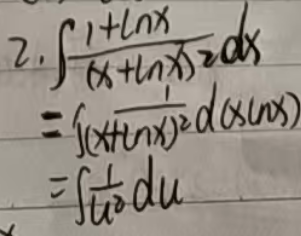 2. ∫ (1+lnx)/(x+lnx)² dx
= ∫ 1/(x+lnx)² d(xlnx)
= ∫ 1/u² du